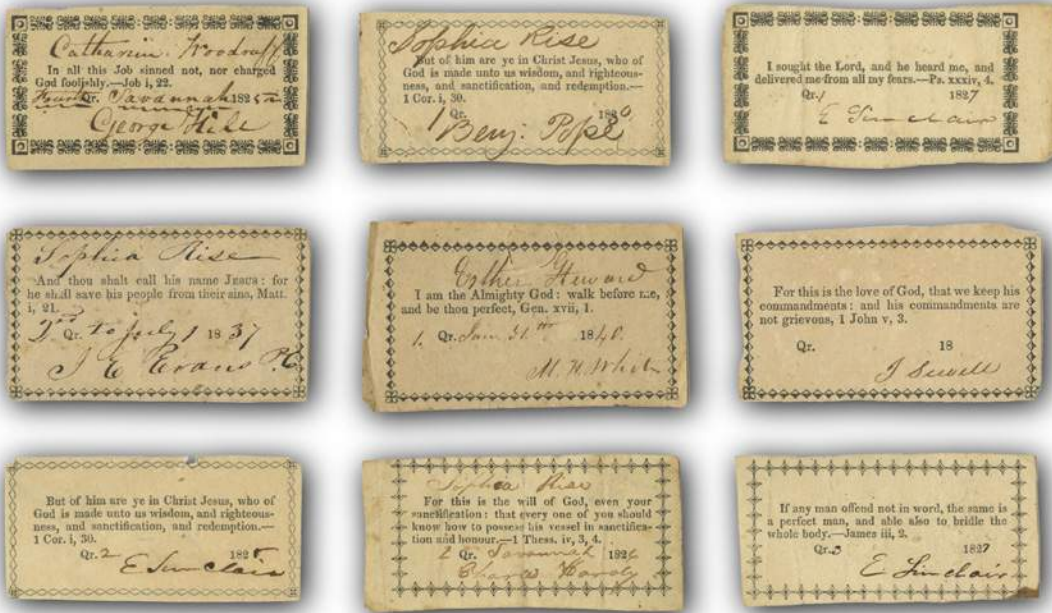 Catharin Woodruff
In all this Job sinned not, nor charged
God foolishly.—Job i, 22.
Fourth Qr. Savannah 1825
George Hill
Sophia Rise
But of him are ye in Christ Jesus, who of
God is made unto us wisdom, and righteous-
ness, and sanctification, and redemption.—
1 Cor. i, 30.
1 Qr. 1826
Benj. Pope
I sought the Lord, and he heard me, and
delivered me from all my fears.—Ps. xxxiv, 4.
Qr. 1 1827
E Sinclair
Sophia Rise
And thou shalt call his name Jesus: for
he shall save his people from their sins, Matt.
i, 21.
Qr. to July 1 1837
J E Evans P.C.
Esther Heward
I am the Almighty God: walk before me,
and be thou perfect, Gen. xvii, 1.
1. Qr. Jan. 31. 1840.
M. H. White
For this is the love of God, that we keep his
commandments: and his commandments are
not grievous, 1 John v, 3.
Qr. 18
J Sewell
But of him are ye in Christ Jesus, who of
God is made unto us wisdom, and righteous-
ness, and sanctification, and redemption.—
1 Cor. i, 30.
Qr. 2 182
E Sinclair
Sophia Rise
For this is the will of God, even your
sanctification: that every one of you should
know how to possess his vessel in sanctifica-
tion and honour.—1 Thess. iv, 3, 4.
2 Qr. Savannah 1826
Charles Hardy
If any man offend not in word, the same is
a perfect man, and able also to bridle the
whole body.—James iii, 2.
Qr. 3 1827
E Sinclair